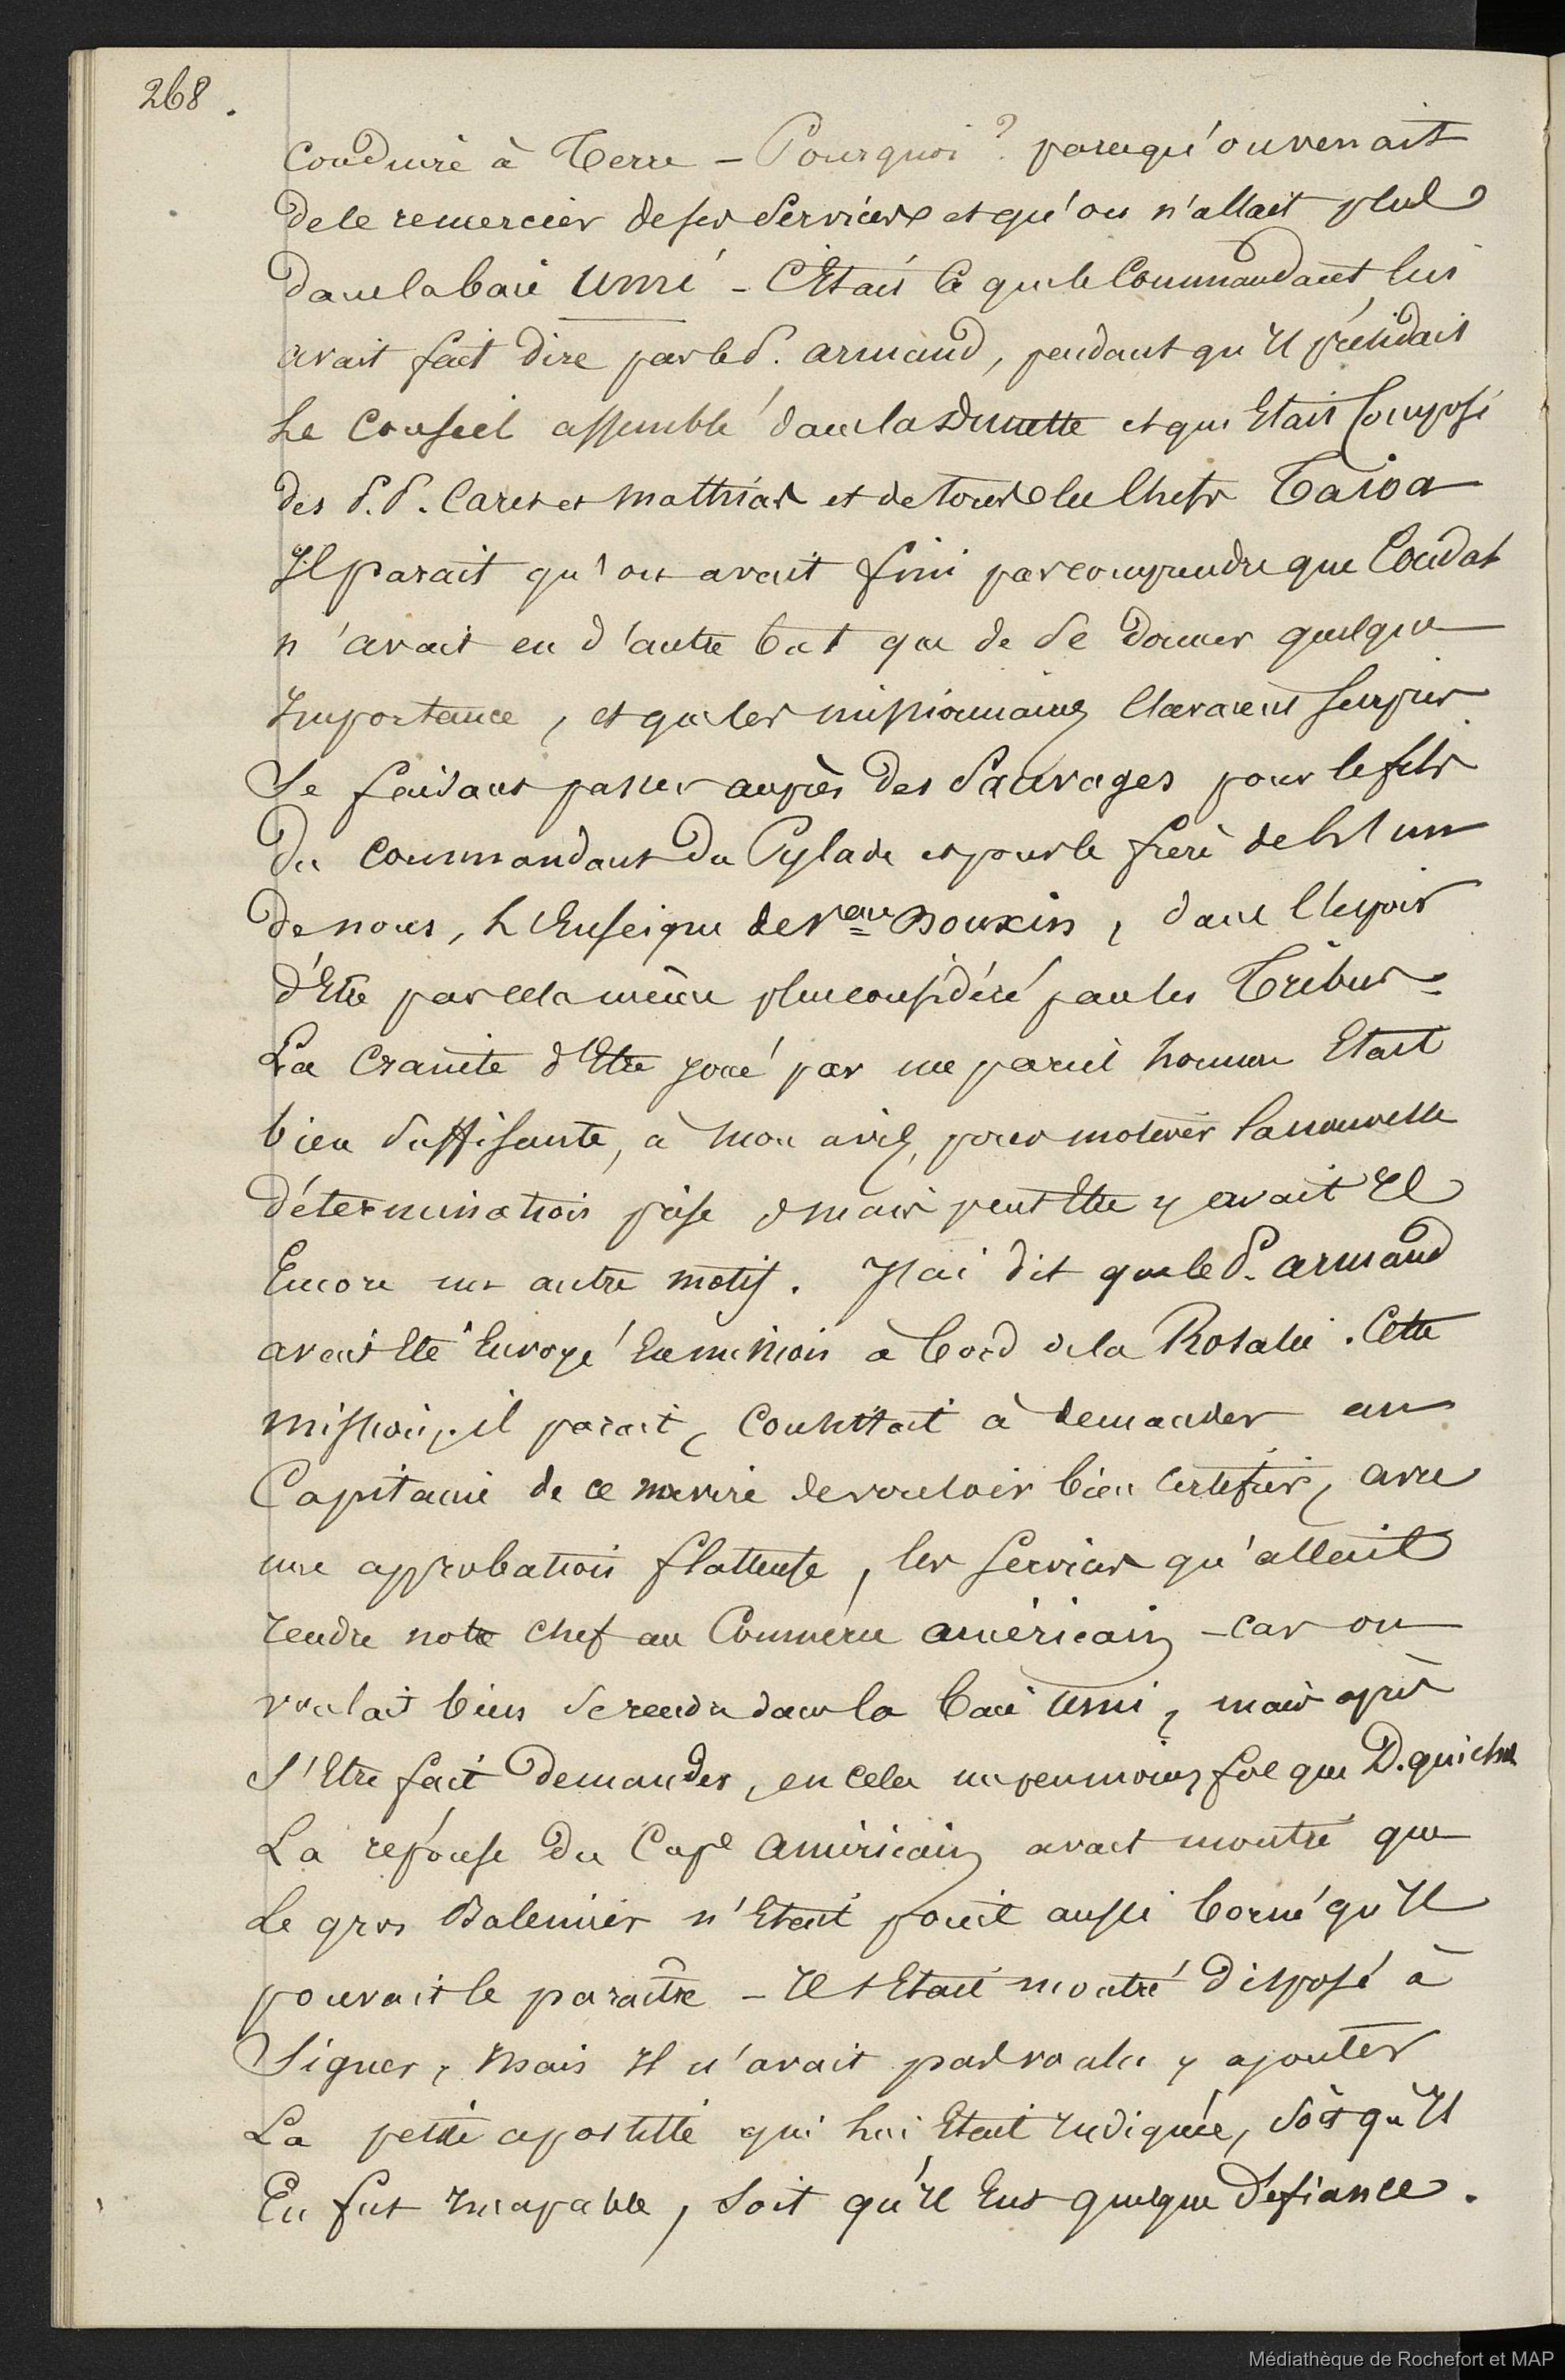 268.
Conduire à Terre – Pourquoi ? parcequ'on venait
de le remercier de ses Services et qu'on n'allait plus
dans la baie Umi – C'Etait Ce que le Commandant lui
avait fait dire par le P. armand, pendant qu'Il présidait
Le Conseil assemblé dans la Dunette et qui Etait Composé
des P.P. Caret et Mathias et de tous les Chefs Taioa
Il parait qu'on avait fini par comprendre que Coudat
n'avait eu d'autre but que de Se donner quelque
Importance, et que les missionnaires l'avaient Surpris
Se faisant passer auprès des Sauvages pour le fils
du Commandant du Pylade et pour le frère de l'un
de nous, L'Enseigne de Veau Bouxin, dans l'Espoir
d'Etre par cela même plus considéré par les Tribus –
La Crainte d'Etre joué par un pareil homme Etait
bien Suffisante, à mon avis, pour motiver la nouvelle
détermination prise, mais peut Etre y avait Il
Encore un autre motif. J'ai dit que le P. armand
avait Eté Envoyé En mission à bord de la Rosalie. Cette
mission, il parait, Consistait à demander au
Capitaine de ce navire de vouloir bien Certifier, avec
une approbation flatteuse, les Services qu'allait
rendre notre Chef au Commerce américain – car on
voulait bien Se rendre dans la baie Umi, mais après
S'Etre fait demander, en cela un peu moins fol que D. quichot
La réponse du Cape américain avait montré que
Le gros Baleinier n'Etait point aussi borné qu'Il
pouvait le paraître – Il S'Etait montré disposé à
Signer, mais Il n'avait pas voulu y ajouter
La petite apostille qui lui Etait Indiquée, Soit qu'Il
En fut Incapable, Soit qu'Il Eut quelque défiance.
Médiathèque de Rochefort et MAP